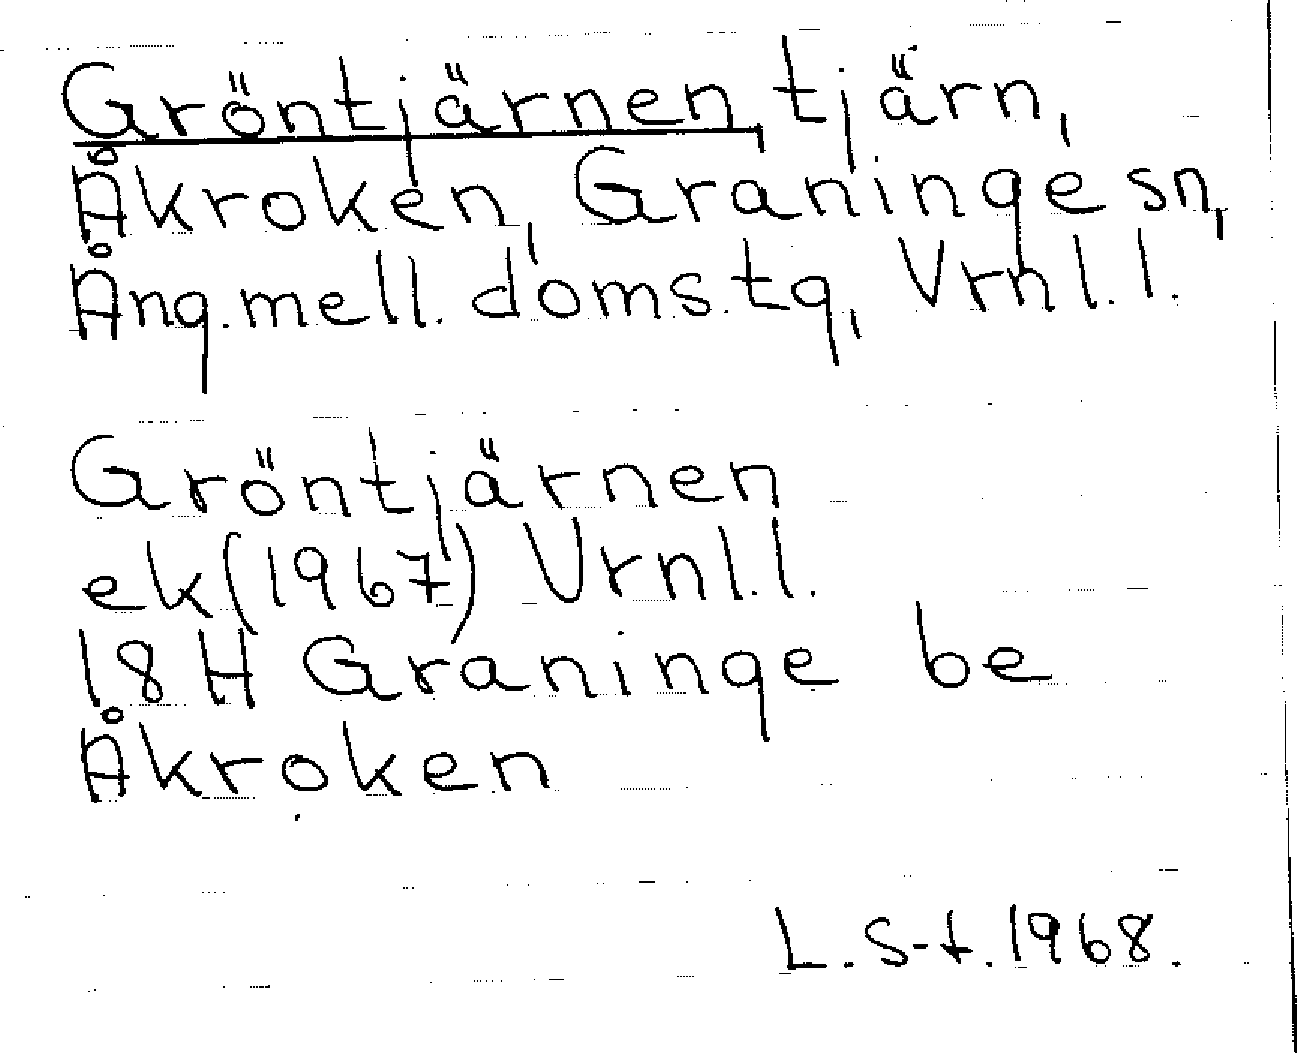 Gröntjärnen, tjärn,
Åkroken, Graninge sn,
Ång.mell. doms.tg, Vrnl.l.
Gröntjärnen
ek(1967) Vrnl.l.
18H Graninge be
Åkroken
L.S-t.1968.